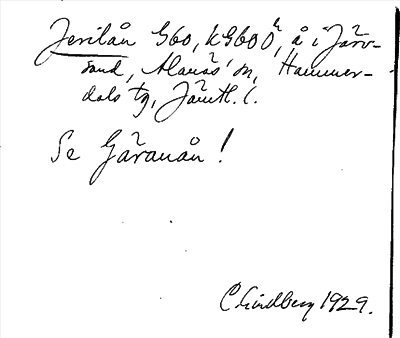 Jerilån Gbo, kGb OÖ, å i Järv-
sand, Alanäs sn, Hammer-
dals tg, Jämtl. l.
Se Gäranån!
C Lindberg 1929.